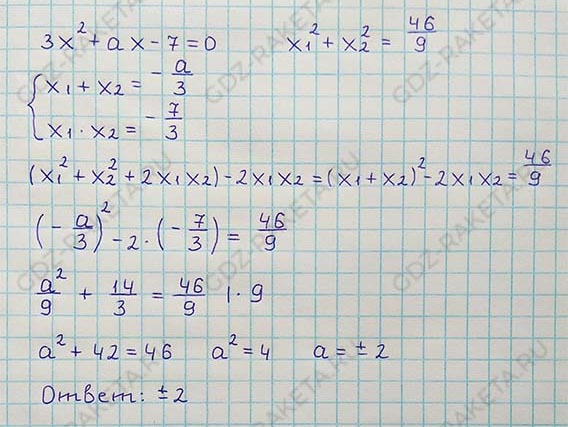 3x² + ax - 7 = 0   x₁² + x₂² = 46/9
{ x₁ + x₂ = - a/3
x₁ · x₂ = - 7/3
(x₁² + x₂² + 2x₁x₂) - 2x₁x₂ = (x₁ + x₂)² - 2x₁x₂ = 46/9
(- a/3)² - 2 · (- 7/3) = 46/9
a²/9 + 14/3 = 46/9 | · 9
a² + 42 = 46   a² = 4   a = ± 2
Ответ: ± 2
GDZ-RAKETA.RU